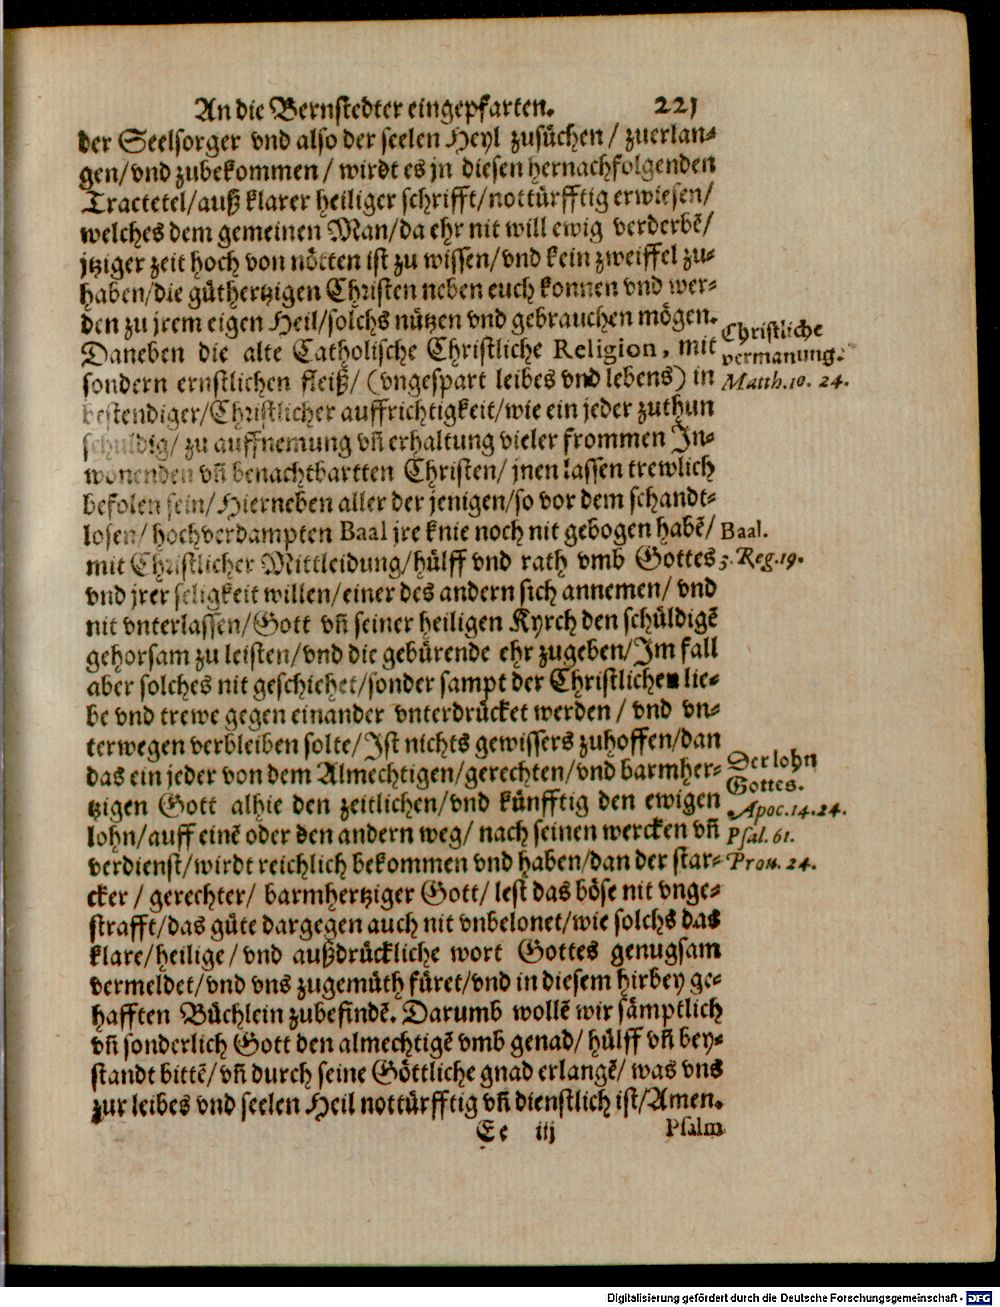 An die Bernstedter eingepfarten. 221
der Seelsorger vnd also der seelen Heyl zusüchen / zuerlan⸗
gen/vnd zubekommen / wirdt es jn diesen hernachfolgenden
Tractetel/auß klarer heiliger schrifft/nottürfftig erwiesen/
welches dem gemeinen Man/da ehr nit will ewig verderbē/
jtziger zeit hoch von nötten ist zu wissen/vnd kein zweiffel zu⸗
haben/die gůthertzigen Christen neben euch konnen vnd wer⸗
den zu jrem eigen Heil/solchs nützen vnd gebrauchen mögen.
Daneben die alte Catholische Christliche Religion, mit
sondern ernstlichen fleiß/ (vngespart leibes vnd lebens) in
bestendiger/Christlicher auffrichtigkeit/wie ein jeder zuthun
schuldig/ zu auffnemung vn̄ erhaltung vieler frommen In⸗
wonenden vn̄ benachtbartten Christen/ jnen lassen trewlich
befolen sein/Hierneben aller der jenigen/so vor dem schandt⸗
losen/ hochverdampten Baal jre knie noch nit gebogen habē/
mit Christlicher Mittleidung/hülff vnd rath vmb Gottes
vnd jrer seligkeit willen/einer des andern sich annemen/ vnd
nit vnterlassen/Gott vn̄ seiner heiligen Kyrch den schüldigē
gehorsam zu leisten/vnd die gebürende ehr zugeben/Im fall
aber solches nit geschiehet/sonder sampt der Christlichen lie⸗
be vnd trewe gegen einander vnterdrücket werden / vnd vn⸗
terwegen verbleiben solte/Ist nichts gewissers zuhoffen/dan
das ein jeder von dem Almechtigen/gerechten/vnd barmher⸗
tzigen Gott alhie den zeitlichen/vnd künfftig den ewigen
lohn/auff einē oder den andern weg/ nach seinen wercken vn̄
verdienst/wirdt reichlich bekommen vnd haben/dan der star⸗
cker / gerechter/ barmhertziger Gott/ lest das böse nit vnge⸗
strafft/das gůte dargegen auch nit vnbelonet/wie solchs das
klare/heilige / vnd außdrückliche wort Gottes genugsam
vermeldet/vnd vns zugemüth füret/vnd in diesem hirbey ge⸗
hafften Büchlein zubefindē. Darumb wollē wir sämptlich
vn̄ sonderlich Gott den almechtigē vmb genad/ hülff vn̄ bey⸗
standt bittē/vn̄ durch seine Göttliche gnad erlangē/ was vns
zur leibes vnd seelen Heil nottürfftig vn̄ dienstlich ist/Amen.
Ee iij Psalm
Christliche
vermanung.
Matth.10. 24.
Baal.
3. Reg.19.
Der lohn
Gottes.
Apoc.14.24.
Psal. 61.
Prou. 24.
Digitalisierung gefördert durch die Deutsche Forschungsgemeinschaft - DFG